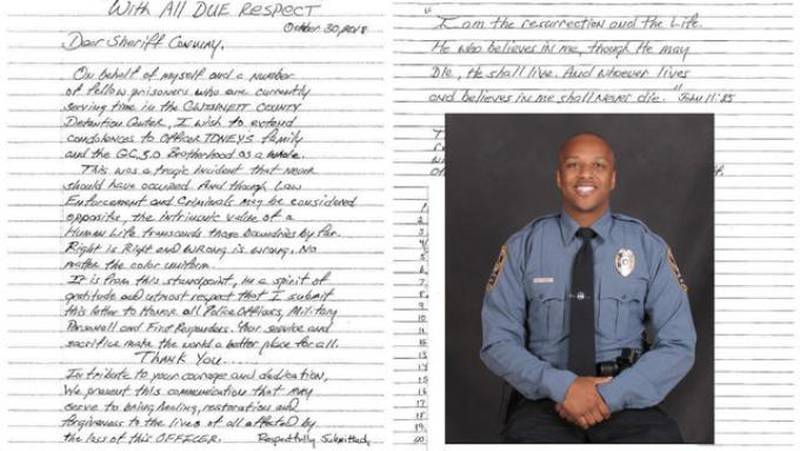 With All DUE RESPECT
October 30, 2018
Dear Sheriff Conway,
On behalf of myself and a number
of fellow prisoners who are currently
serving time in the GWINNETT COUNTY
Detention Center, I wish to extend
condolences to OFFicer TONEY'S family
and the G.C.S.O Brotherhood as a whole.
This was a tragic incident that never
should have occured. And though Law
Enforcement and Criminals may be considered
opposite, the intrinsic value of a
Human Life transcends those boundries by far.
Right is Right and WRONG is wrong. No
matter the color uniform.
It is from this standpoint, in a spirit of
gratitude and utmost respect that I submit
this letter to Honor all Police Officers, Military
Personell and First Responders. Your service and
sacrifice make the world a better place for all.
THANK YOU.....
In tribute to your courage and dedication,
We present this communication that may
serve to bring healing, restoration and
forgiveness to the lives of all affected by
the loss of this OFFICER. Respectfully Submitted,
"I am the resurrection and the Life.
He who believes in me, though He may
Die, He shall live. And whoever lives
and believes in me shall Never die." John 11:25
1.
2.
3.
4.
5.
6.
7.
8.
9.
10
11
12
13
14
15
16
17
18
19
20